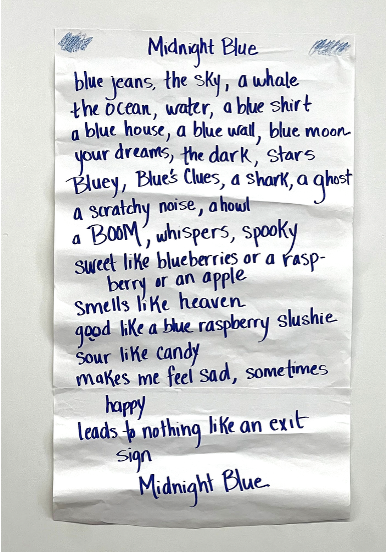 Midnight Blue
blue jeans, the sky, a whale
the ocean, water, a blue shirt
a blue house, a blue wall, blue moon
your dreams, the dark, stars
Bluey, Blue's Clues, a shark, a ghost
a scratchy noise, a howl
a BOOM, whispers, spooky
sweet like blueberries or a rasp-
berry or an apple
smells like heaven
good like a blue raspberry slushie
sour like candy
makes me feel sad, sometimes
happy
leads to nothing like an exit
sign
Midnight Blue